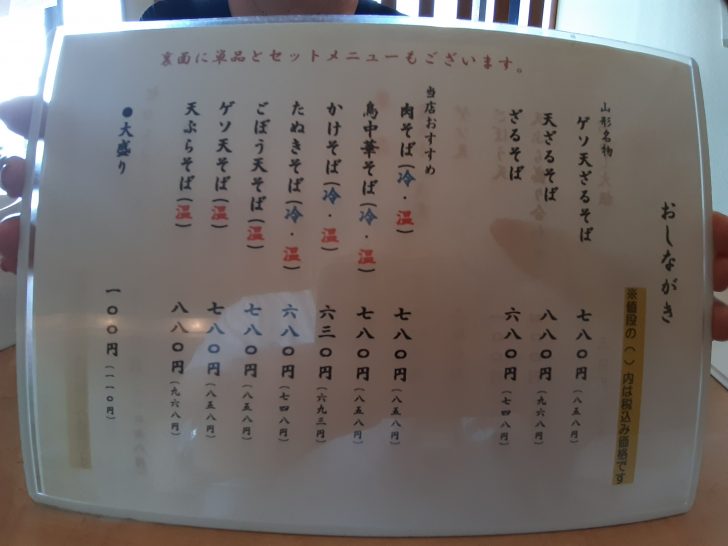 裏面に単品とセットメニューもございます。
おしながき
※値段の( )内は税込み価格です
山形名物
ゲソ天ざるそば 七八〇円(八五八円)
天ざるそば 八八〇円(九六八円)
ざるそば 六八〇円(七四八円)
当店おすすめ
肉そば(冷・温) 七八〇円(八五八円)
鳥中華そば(冷・温) 七八〇円(八五八円)
かけそば(冷・温) 六三〇円(六九三円)
たぬきそば(冷・温) 六八〇円(七四八円)
ごぼう天そば(温) 七八〇円(八五八円)
ゲソ天そば(温) 七八〇円(八五八円)
天ぷらそば(温) 八八〇円(九六八円)
●大盛り 一〇〇円(一一〇円)